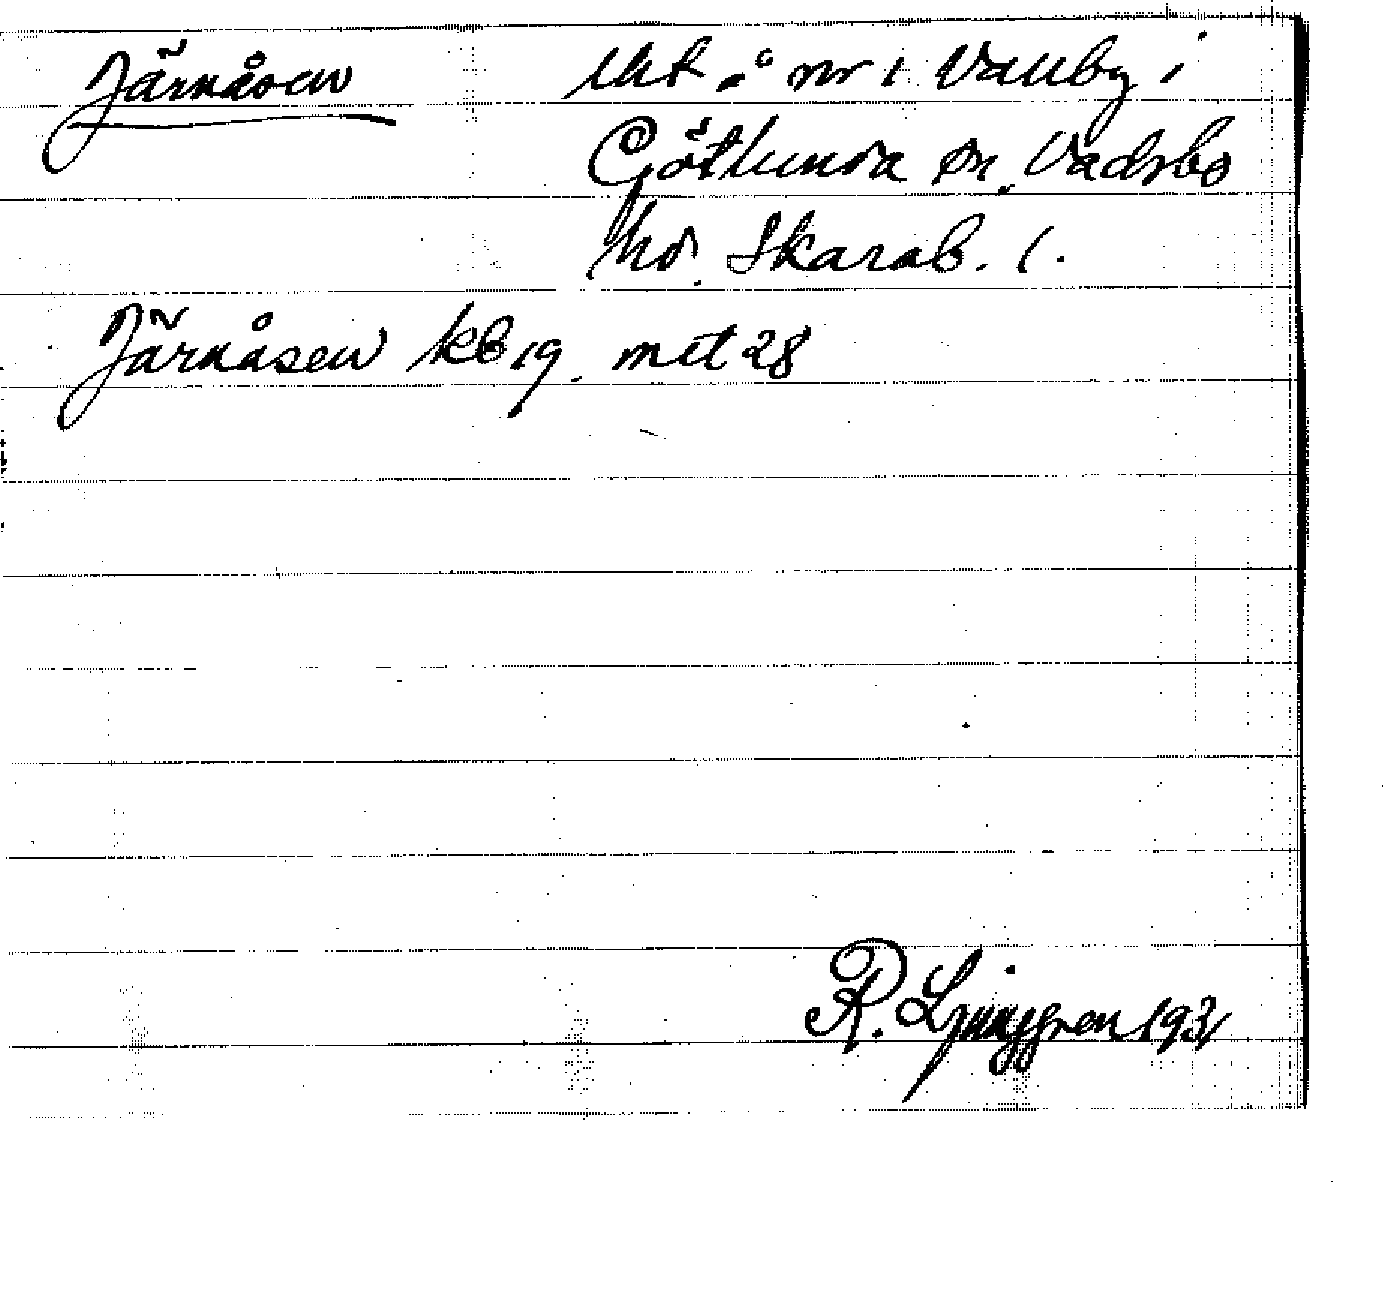 Järnåsen lht å nr 1 Vallby i
Götlunda sn. Vadsbo
hd. Skarab. l.
Järnåsen kb 19. mtl 28
R. Ljunggren 1931